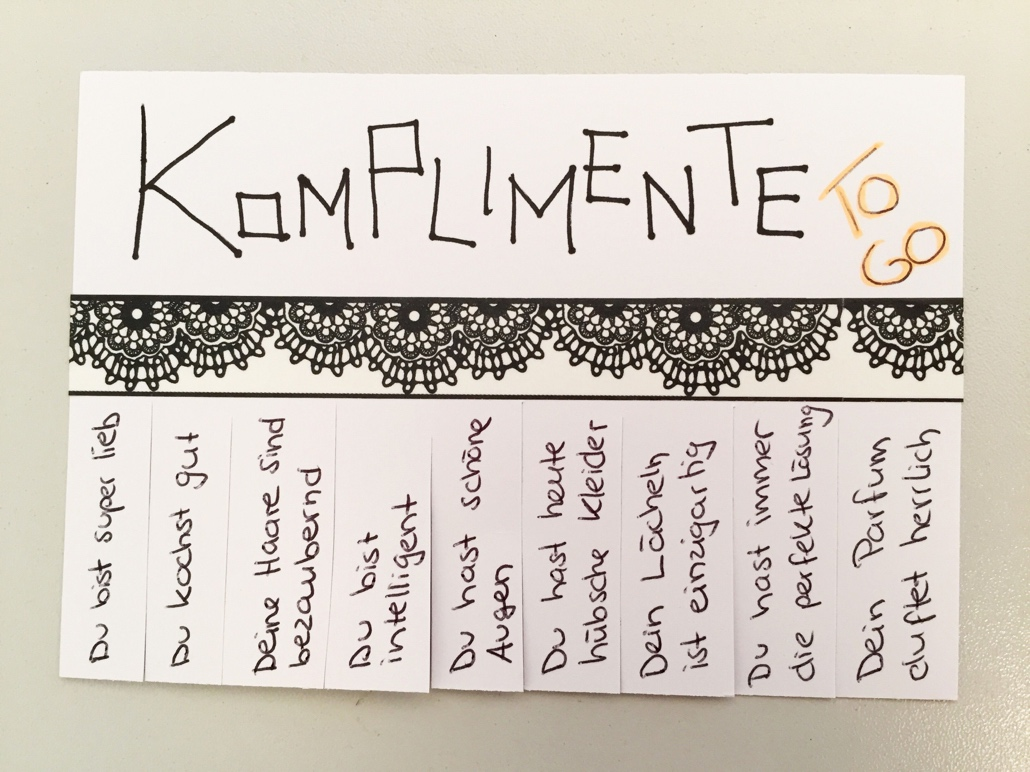 KOMPLIMENTE
TO
GO
Du bist super lieb
Du kochst gut
Deine Haare sind
bezaubernd
Du bist
intelligent
Du hast schöne
Augen
Du hast heute
hübsche Kleider
Dein Lächeln
ist einzigartig
Du hast immer
die perfekte Lösung
Dein Parfum
duftet herrlich